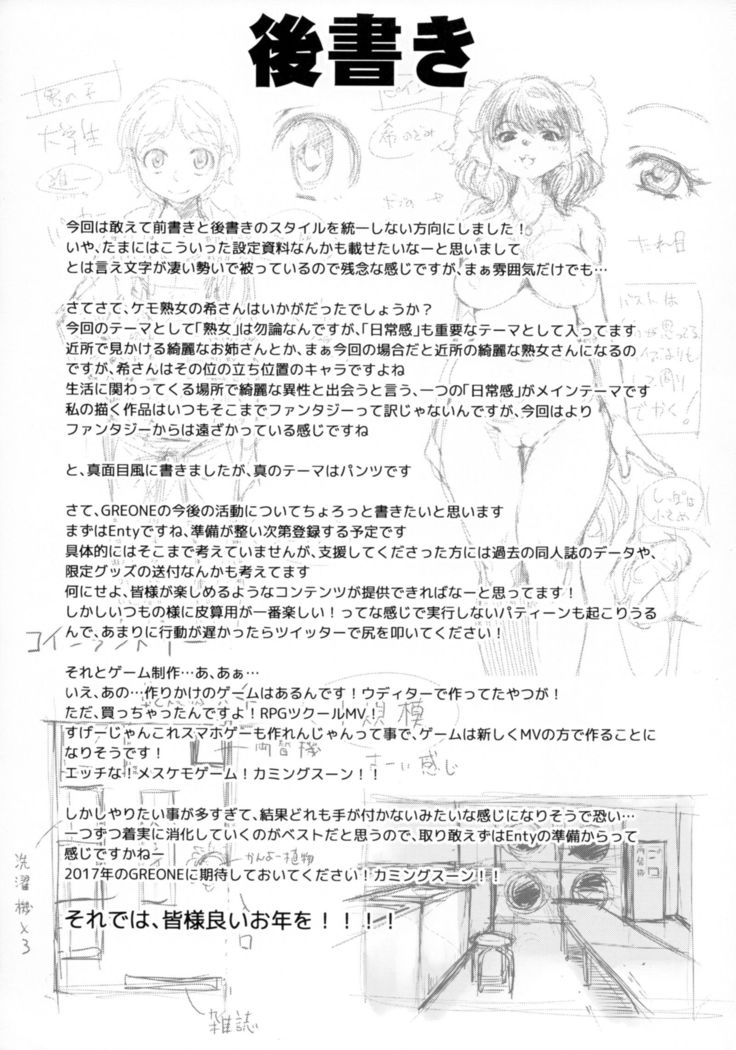 後書き
男の子
大学生
希のぞみ
たれ目
今回は敢えて前書きと後書きのスタイルを統一しない方向にしました！
いや、たまにはこういった設定資料なんかも載せたいなーと思いまして
とは言え文字が凄い勢いで被っているので残念な感じですが、まぁ雰囲気だけでも…
さてさて、ケモ熟女の希さんはいかがだったでしょうか？
今回のテーマとして「熟女」は勿論なんですが、「日常感」も重要なテーマとして入ってます
近所で見かける綺麗なお姉さんとか、まぁ今回の場合だと近所の綺麗な熟女さんになるの
ですが、希さんはその位の立ち位置のキャラですよね
生活に関わってくる場所で綺麗な異性と出会うと言う、一つの「日常感」がメインテーマです
私の描く作品はいつもそこまでファンタジーって訳じゃないんですが、今回はより
ファンタジーからは遠ざかっている感じですね
と、真面目風に書きましたが、真のテーマはパンツです
さて、GREONEの今後の活動についてちょろっと書きたいと思います
まずはEntyですね、準備が整い次第登録する予定です
具体的にはそこまで考えていませんが、支援してくださった方には過去の同人誌のデータや、
限定グッズの送付なんかも考えてます
何にせよ、皆様が楽しめるようなコンテンツが提供できればなーと思ってます！
しかしいつもの様に皮算用が一番楽しい！ってな感じで実行しないパティーンも起こりうる
んで、あまりに行動が遅かったらツイッターで尻を叩いてください！
コインランドリー
それとゲーム制作…あ、あぁ…
いえ、あの…作りかけのゲームはあるんです！ウディターで作ってたやつが！
ただ、買っちゃったんですよ！RPGツクールMV！
すげーじゃんこれスマホゲーも作れんじゃんって事で、ゲームは新しくMVの方で作ることに
なりそうです！
エッチな！メスケモゲーム！カミングスーン！！
規模
両替機
感じ
しかしやりたい事が多すぎて、結果どれも手が付かないみたいな感じになりそうで恐い…
一つずつ着実に消化していくのがベストだと思うので、取り敢えずはEntyの準備からって
感じですかねー
2017年のGREONEに期待しておいてください！カミングスーン！！
かんよー植物
洗濯機×3
それでは、皆様良いお年を！！！！
雑誌